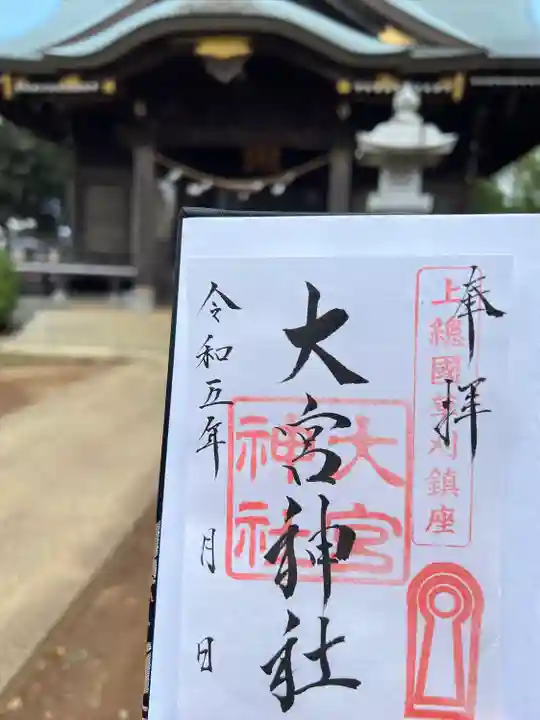 奉拝
上總國草刈鎮座
大宮神社
大宮
神社
令和五年 月 日